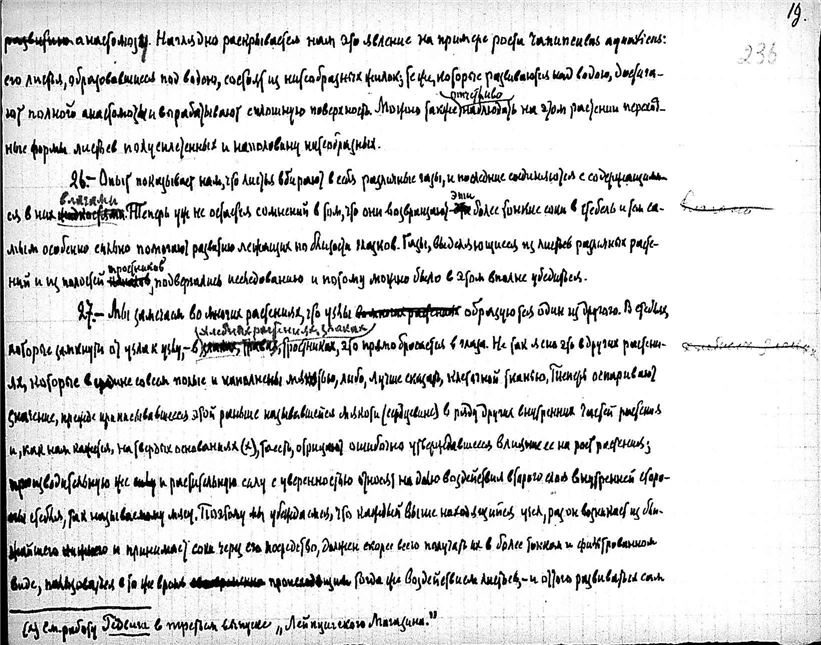 19.
236
развитию анастомозу. Наглядно раскрывается нам это явление на примере роста
его листья, образовавшиеся под водою, состоят из нитеобразных жилок; те же, которые развиваются над водою, достига-
ют полного анастомоза и вырабатывают сплошную поверхность. Можно также отчетливо наблюдать на этом растении переход-
ные формы листьев полусплетенных и наполовину нитеобразных.
26.– Опыт показывает нам, что листья вбирают в себя различные газы, и последние соединяются с содержащими-
ся в них влагами. Теперь уж не остается сомнений в том, что они возвращают эти более тонкие соки в стебель и тем са-
мым особенно сильно помогают развитию лежащих по близости глазков. Газы, выделяющиеся из листьев различных расте-
ний и из полостей тростников, подвергались исследованию и потому можно было в этом вполне убедиться.
27.– Мы замечаем во многих растениях, что узлы во многих растениях образуются один из другого. В стеблях,
которые замкнуты от узла к узлу,– в хлебных растениях, злаках, тростниках, это прямо бросается в глаза. Не так ясно это в других растени-
ях, которые в средине совсем полые и наполнены мякотью, либо, лучше сказать, клеточной тканью. Теперь оспаривают
значение, прежде приписывавшееся этой раньше называвшейся мякоти (сердцевине) в ряду других внутренних частей растения
и, как нам кажется, на твердых основаниях (х), то есть, отрицают ошибочно утверждавшееся влияние ее на рост растения;
производительную же силу и растительную силу с уверенностью относят на долю воздействия второго слоя внутренней сторо-
ны стебля, так называемому мясу. Поэтому мы убеждаемся, что каждый выше находящийся узел, раз он возникает из бли-
жайшего нижнего и принимает соки через его посредство, должен скорее всего получать их в более тонком и фильтрованном
виде, пользоваться в то же время происходящим тогда же воздействием листьев,– и от того развиваться сам
(х) см. работу Гедвига в третьем выпуске „Лейпцигского Магазина."